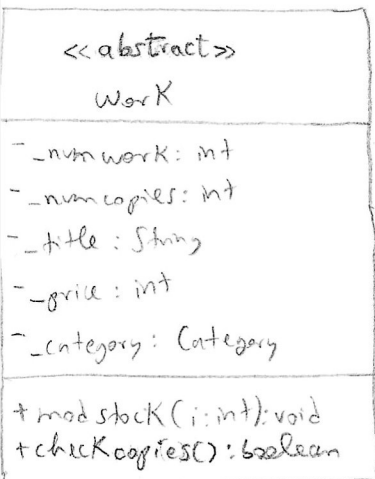 <<abstract>>
Work
- _numwork: int
- _numcopies: int
- _title: String
- _price: int
- _category: Category
+ modstock(i:int): void
+ checkcopies(): boolean